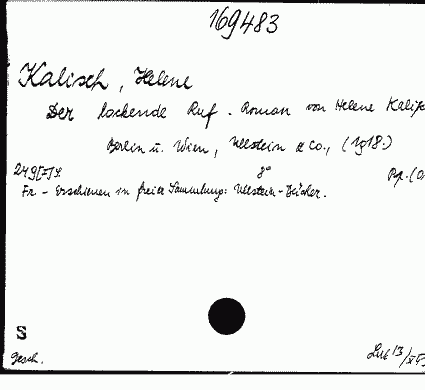 169483
Kalisch, Helene
Der lockende Ruf. Roman von Helene Kalisc
Berlin u. Wien, Ullstein & Co., (1918.)
249[-] S. 8° Pp. (
Fr. - Erschienen in freier Sammlung: Ullstein-Bücher.
S
gesch.